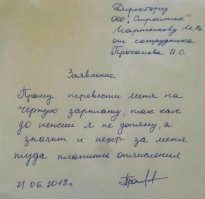 Директору
ООО "Строитель"
Мартынову М.В.
от сотрудника
Проханова И.С.
Заявление
Прошу перевести меня на
чёрную зарплату, так как
до пенсии я не дотяну, а
значит и нехер за меня
туда платить отчисления
21.06.2018г.